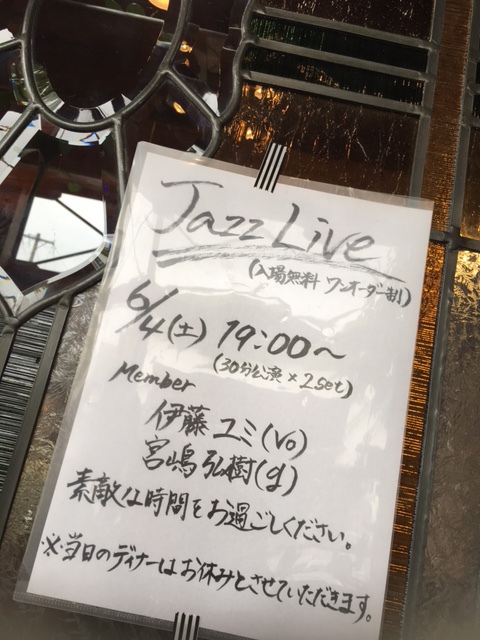 Jazz Live
(入場無料 ワンオーダー制)
6/4(土) 19:00〜
(30分公演×2set)
Member
伊藤 ユミ(vo)
宮嶋 弘樹(g)
素敵な時間をお過ごしください。
※当日のディナーはお休みとさせていただきます。